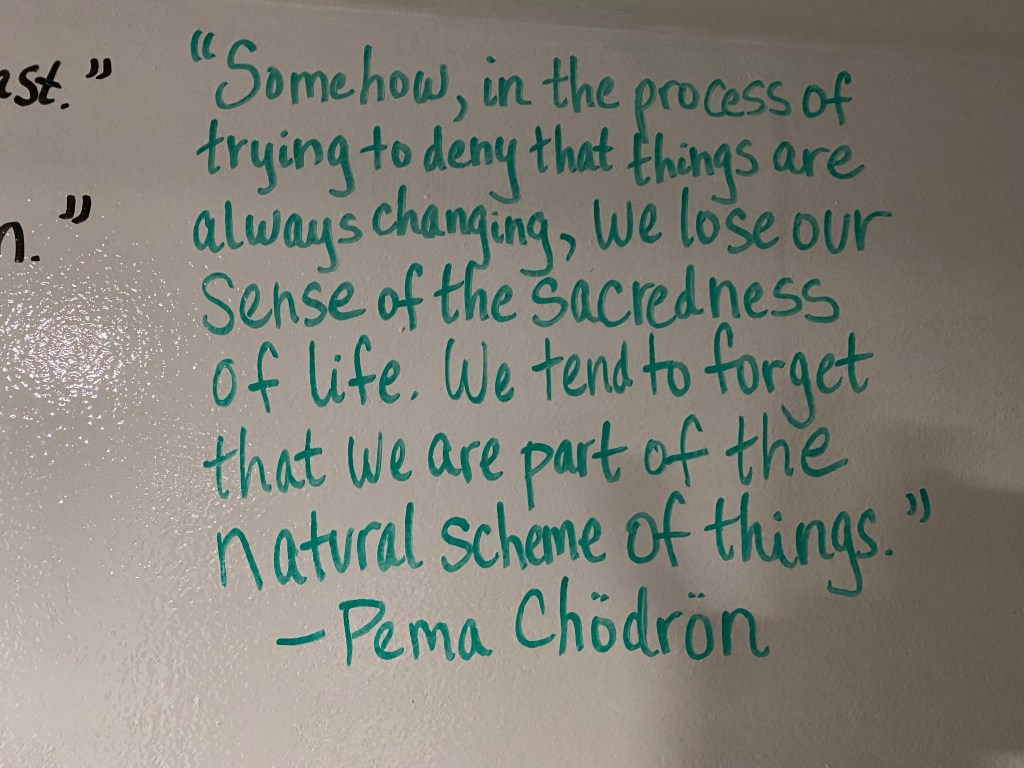 “Somehow, in the process of
trying to deny that things are
always changing, we lose our
sense of the sacredness
of life. We tend to forget
that we are part of the
natural scheme of things.”
— Pema Chödrön